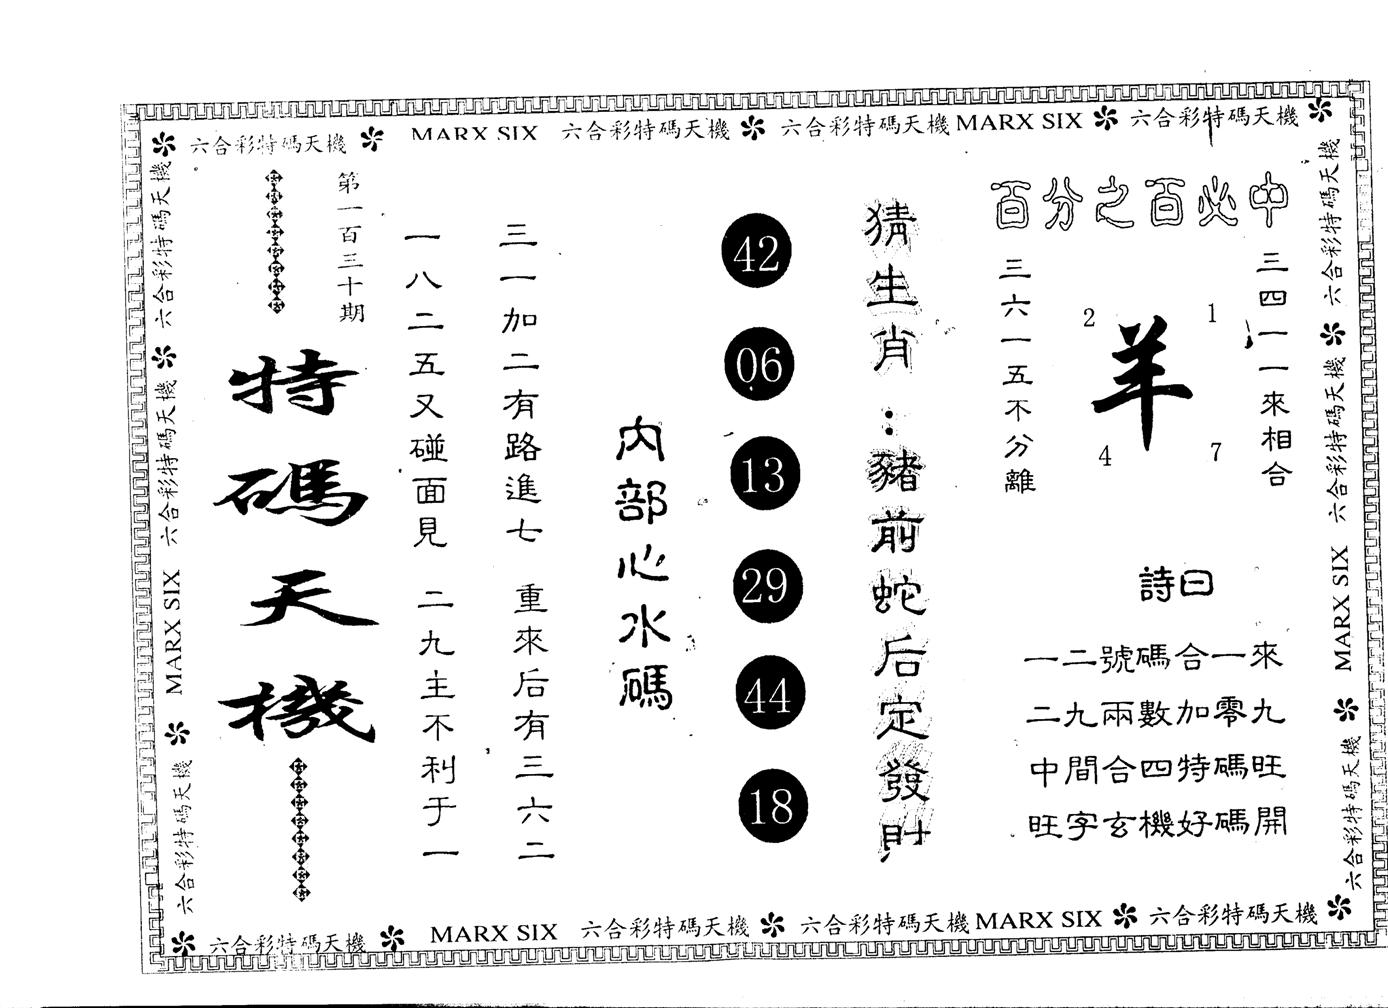 六合彩特碼天機 MARX SIX 六合彩特碼天機 六合彩特碼天機 MARX SIX 六合彩特碼天機
六合彩特碼天機 六合彩特碼天機 MARX SIX 六合彩特碼天機
第一百三十期
特碼天機
一八二五又碰面見 二九主不利于一
三一加二有路進七 重來后有三六二
內部心水碼
42
06
13
29
44
18
猜生肖:豬前蛇后定發財
百分之百必中
三四一一來相合
三六一五不分離
2 1
羊
4 7
詩曰
一二號碼合一來
二九兩數加零九
中間合四特碼旺
旺字玄機好碼開
六合彩特碼天機 六合彩特碼天機 MARX SIX 六合彩特碼天機
六合彩特碼天機 MARX SIX 六合彩特碼天機 六合彩特碼天機 MARX SIX 六合彩特碼天機